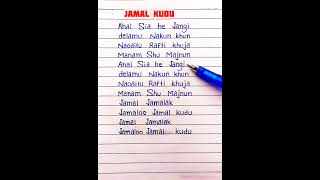 JAMAL KUDU
Ahai Sia he Jangi
delamu Nakun khun
Naoaitu Rafti khuja
Manam Shu Majnun
Ahai Sia he Jangi
delamu Nakun khun
Naoaitu Rafti khuja
Manam Shu Majnun
Jamal Jamalak
Jamaloo Jamal kudu
Jamal Jamalak
Jamaloo Jamal kudu